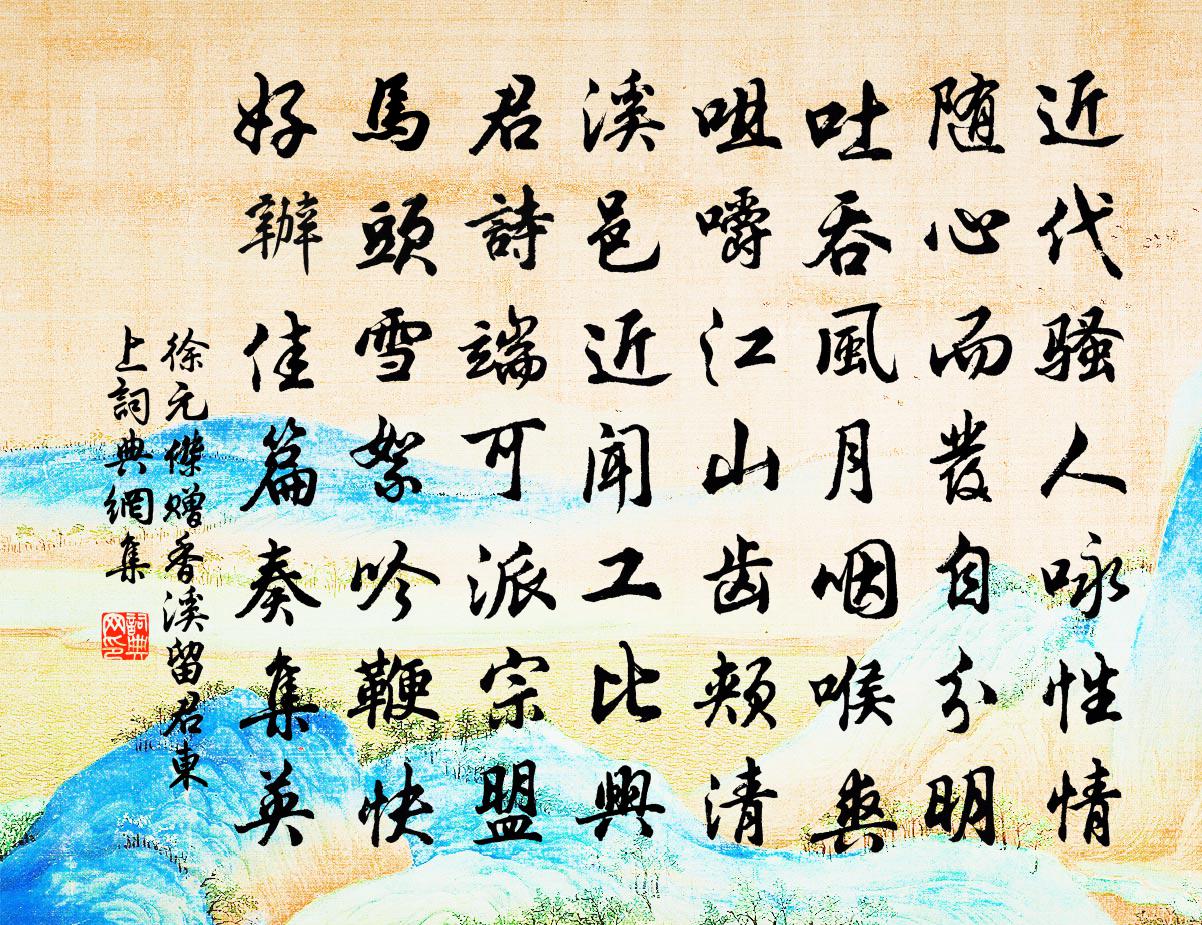 近代骚人咏性情
随心而發自分明
吐吞風月咽喉爽
咀嚼江山齿颊清
溪邑近闻工比興
君詩端可派宗盟
馬頭雪絮吟鞭快
好辦佳篇奏集英
徐元傑赠香溪留君東
上詞典網集
詞典网印